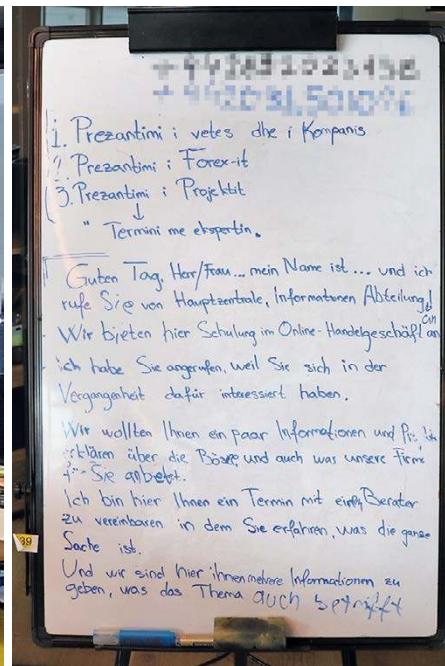 1. Prezantimi i vetes dhe i Kompanis
2. Prezantimi i Forex-it
3. Prezantimi i Projektit
↓
" Termini me ekspertin.
Guten Tag, Herr/Frau... mein Name ist ... und ich
rufe Sie von Hauptzentrale, Informatonen Abteilung
an
Wir bieten hier Schulung im Online-Handelgeschäft an
ich habe Sie angerufen, weil Sie sich in der
Vergangenheit dafür interessiert haben.
Wir wollten Ihnen ein paar Informationen und
erklären über die Böse, und auch was unsere Firma
Sie anbietet.
Ich bin hier Ihnen ein Termin mit Berater
zu vereinbaren in dem Sie erfahren, was die ganze
Sache ist.
Und wir sind hier ihnen mehrere Informationen zu
geben, was das Thema auch betrifft
39